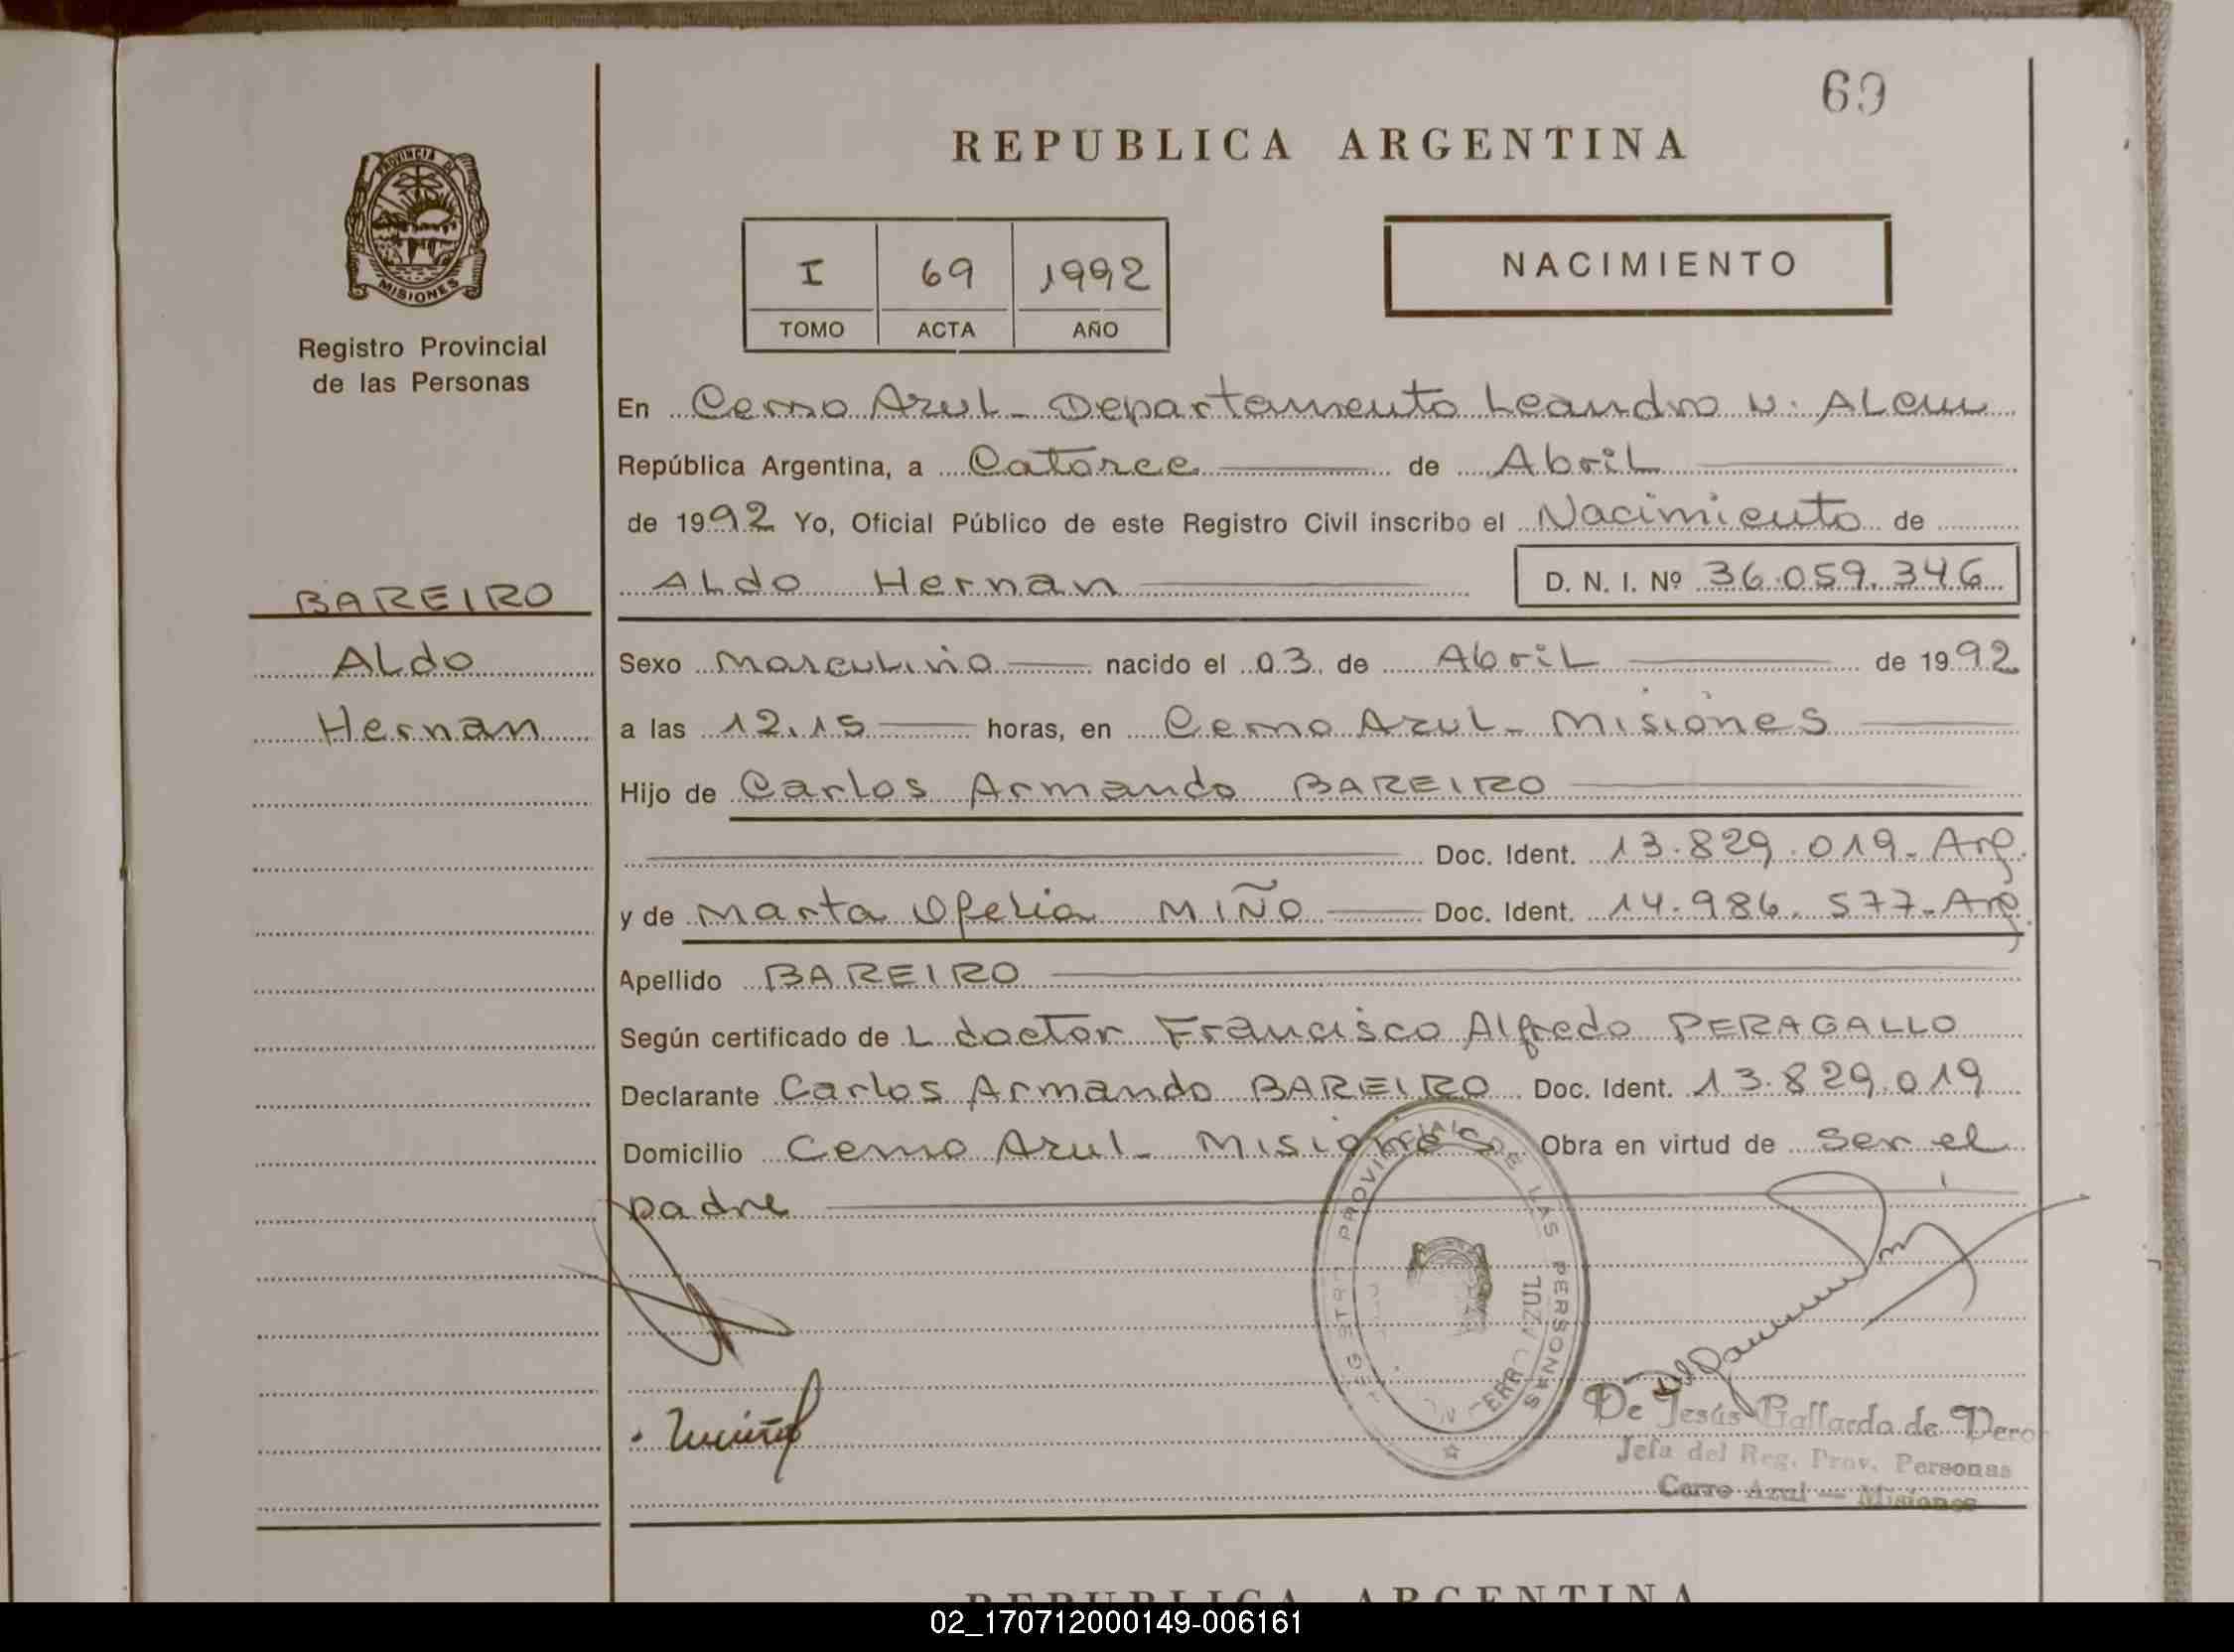 69
REPUBLICA ARGENTINA
PROVINCIA DE
MISIONES
Registro Provincial
de las Personas
I 69 1992
TOMO ACTA AÑO
NACIMIENTO
En Cerro Azul - Departamento Leandro N. Alem
República Argentina, a Catorce de Abril
de 1992 Yo, Oficial Público de este Registro Civil inscribo el Nacimiento de
Aldo Hernan D. N. I. Nº 36.059.346
BAREIRO
Aldo
Hernan
Sexo Masculino nacido el 03 de Abril de 1992
a las 12.15 horas, en Cerro Azul - Misiones
Hijo de Carlos Armando BAREIRO
Doc. Ident. 13.829.019 - Arg.
y de Marta Ofelia MIÑO Doc. Ident. 14.986.577 - Arg.
Apellido BAREIRO
Según certificado de L doctor Francisco Alfredo PERAGALLO
Declarante Carlos Armando BAREIRO Doc. Ident. 13.829.019
Domicilio Cerro Azul - Misiones Obra en virtud de ser el
padre
PROVINCIAL DE LAS PERSONAS
AZUL
De Jesús Gallardo de Dero
Jefa del Reg. Prov. Personas
Cerro Azul — Misiones
REPUBLICA ARGENTINA
02_170712000149-006161